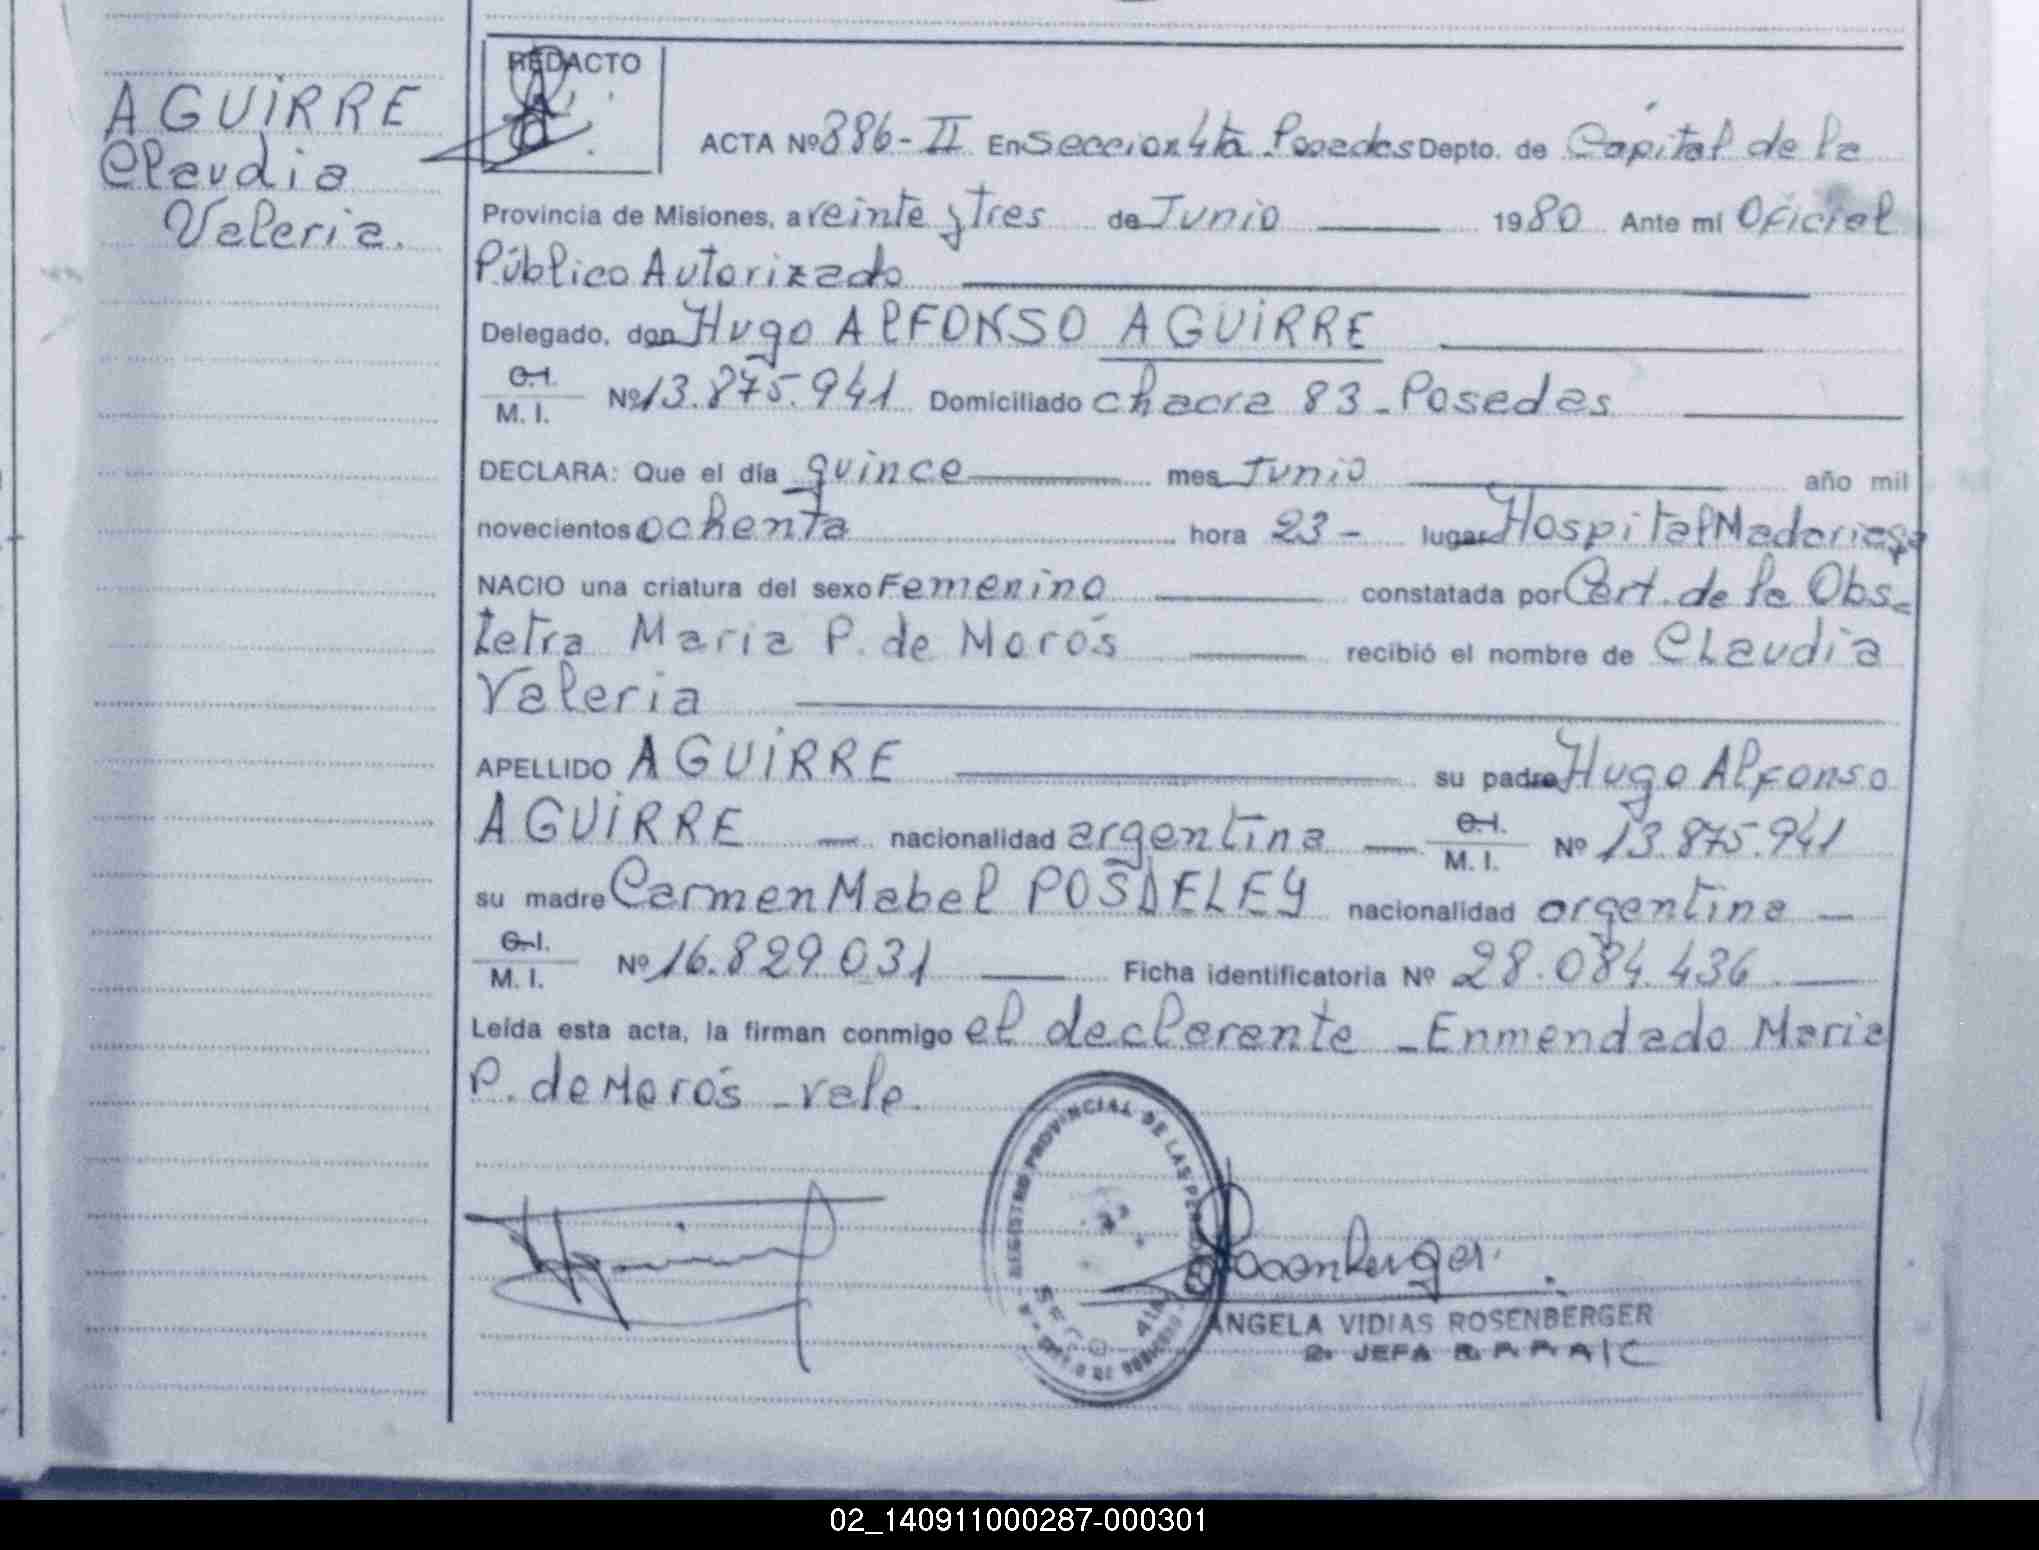 AGUIRRE
Claudia
Valeria.
REDACTO
ACTA Nº 886-II En Seccion 4ta Posadas Depto. de Capital de la
Provincia de Misiones, a veinte y tres de Junio 1980 Ante mí Oficial
Público Autorizado
Delegado, don Hugo ALFONSO AGUIRRE
C.I.
M. I. Nº 13.875.941 Domiciliado chacra 83 - Posadas
DECLARA: Que el día quince mes Junio año mil
novecientos ochenta hora 23 - lugar Hospital Madariaga
NACIO una criatura del sexo Femenino constatada por Cert. de la Obs-
tetra Maria P. de Morós recibió el nombre de Claudia
Valeria
APELLIDO AGUIRRE su padre Hugo Alfonso
AGUIRRE nacionalidad argentina C.I.
M. I. Nº 13.875.941
su madre Carmen Mabel POSDELEY nacionalidad argentina
C.I.
M. I. Nº 16.829.031 Ficha identificatoria Nº 28.084.436
Leída esta acta, la firman conmigo el declarante - Enmendado Maria
P. de Morós - vale.
REGISTRO PROVINCIAL DE LAS PERSONAS
Rosenberger.
ANGELA VIDIAS ROSENBERGER
JEFA
02_140911000287-000301